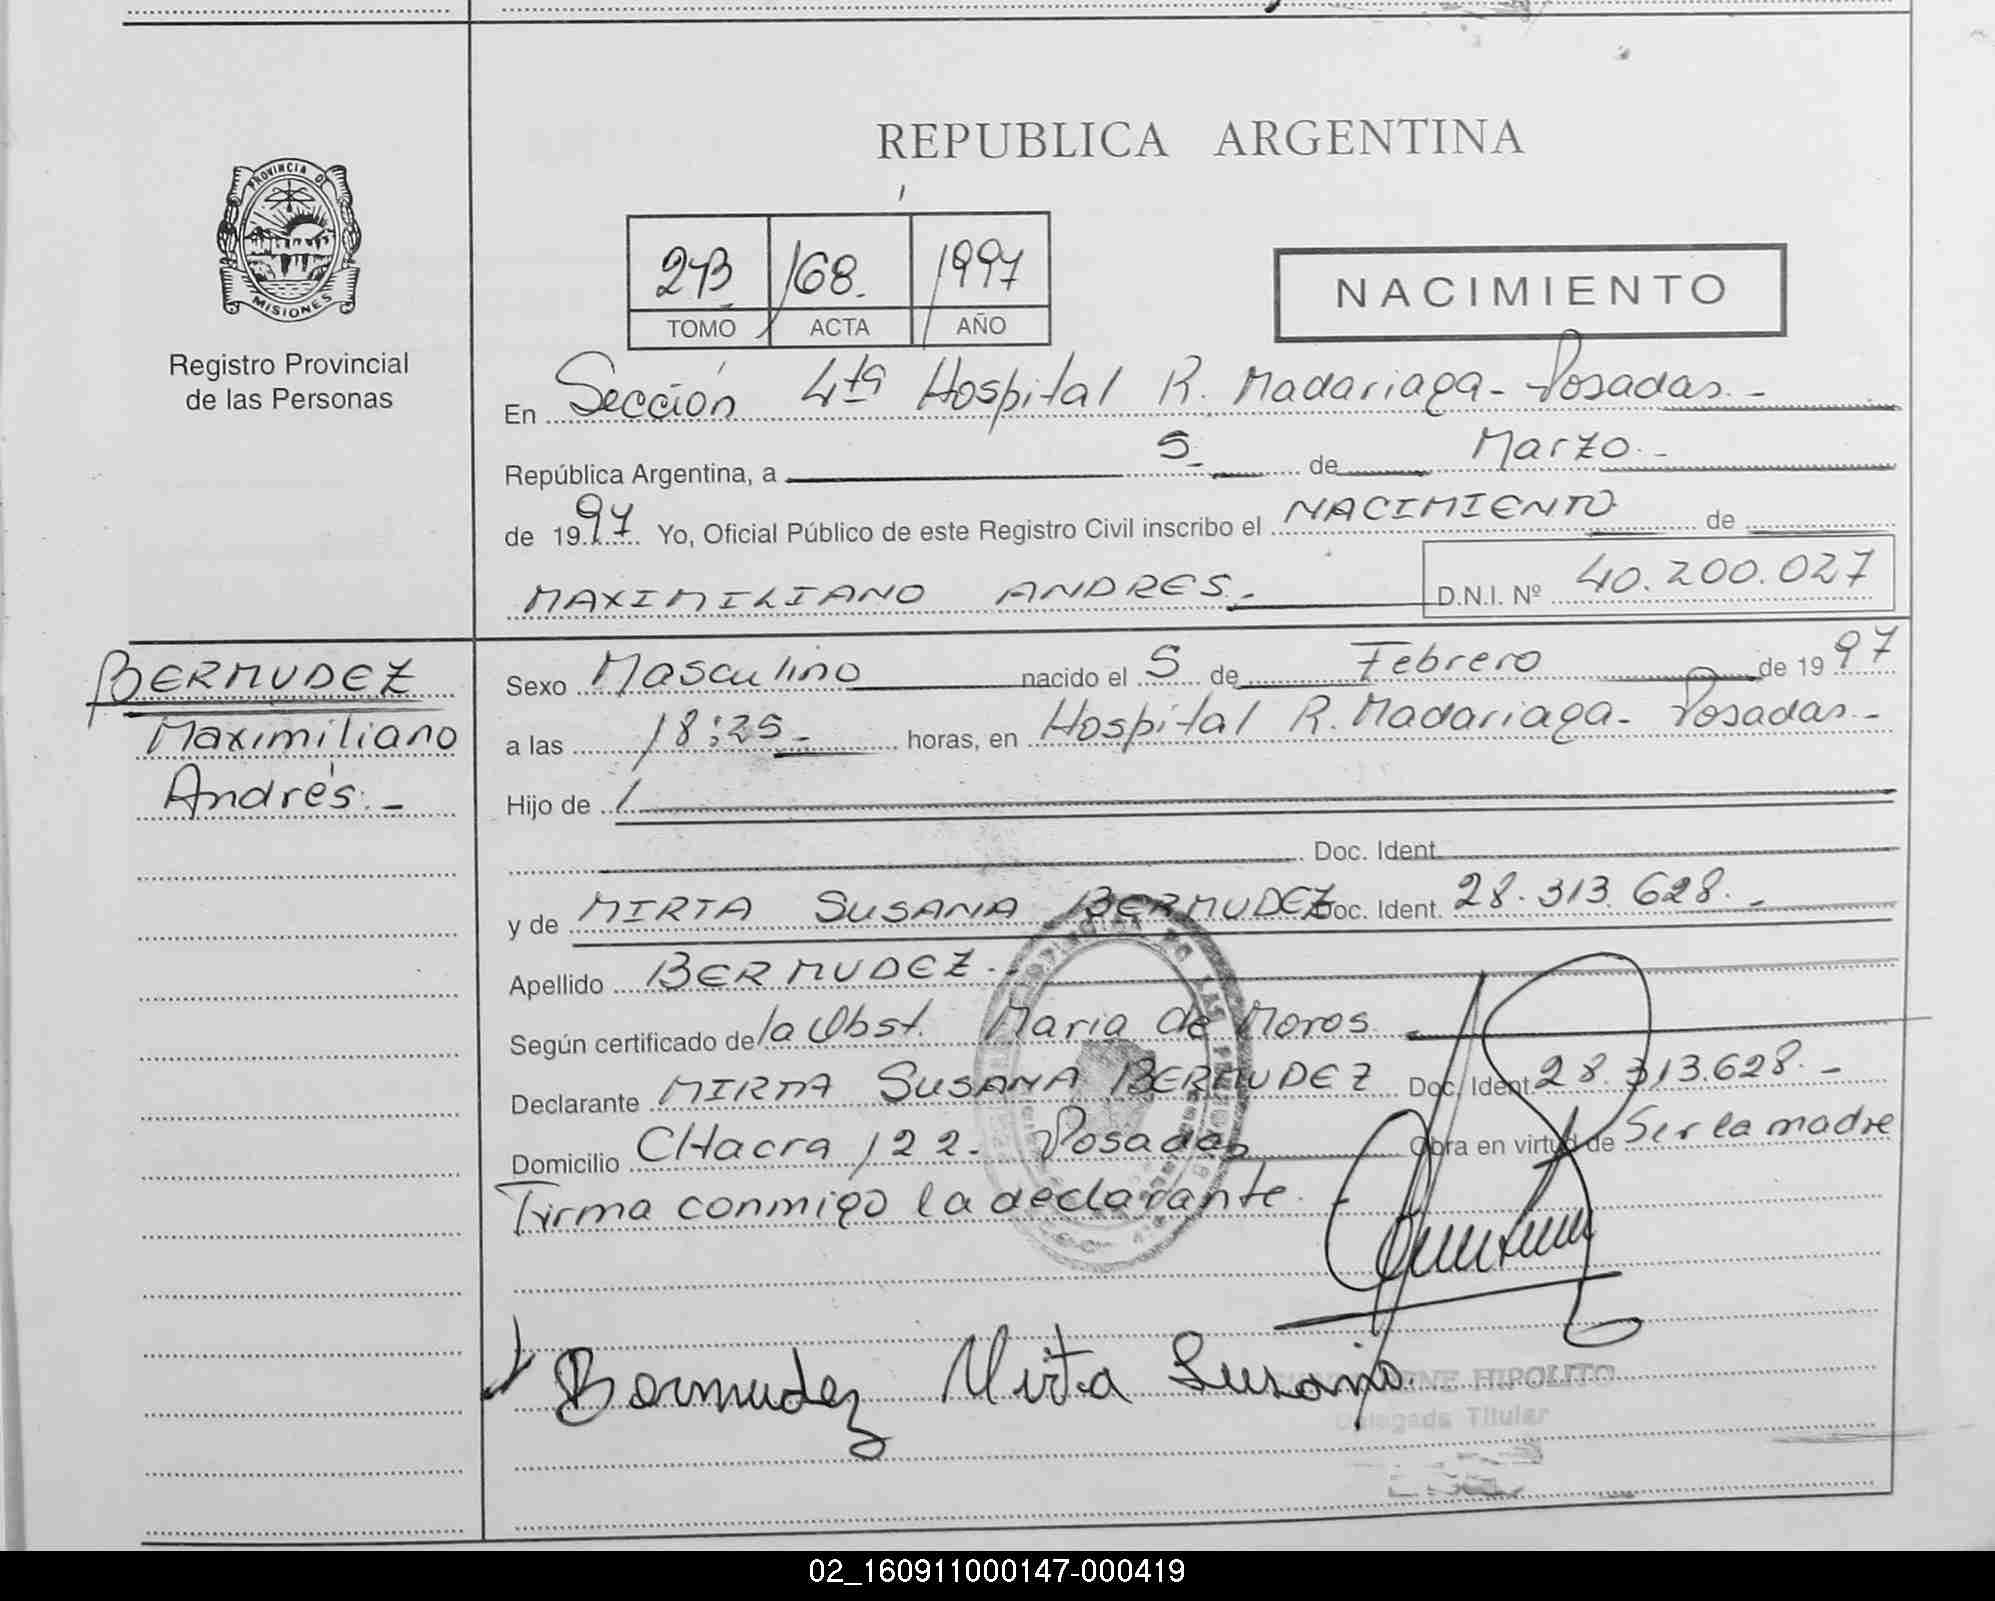 REPUBLICA ARGENTINA
PROVINCIA DE
MISIONES
Registro Provincial
de las Personas
273 168. 1997
TOMO ACTA AÑO
NACIMIENTO
En Sección 4ta Hospital R. Madariaga - Posadas. -
República Argentina, a 5 de Marzo. -
de 1997 Yo, Oficial Público de este Registro Civil inscribo el NACIMIENTO de
MAXIMILIANO ANDRES. - D.N.I. Nº 40.200.027
BERMUDEZ
Maximiliano
Andrés. -
Sexo Masculino nacido el 5 de Febrero de 1997
a las 18:25 - horas, en Hospital R. Madariaga - Posadas. -
Hijo de
Doc. Ident.
y de MIRTA SUSANA BERMUDEZ Doc. Ident. 28.313.628. -
Apellido BERMUDEZ. -
Según certificado de la Obst. Maria de Moros
Declarante MIRTA SUSANA BERMUDEZ Doc. Ident. 28.313.628. -
Domicilio CHacra 122 - Posadas Obra en virtud de Ser la madre
Firma conmigo la declarante. -
Bermudez Mirta Susana
HIPOLITO
Delegada Titular
02_160911000147-000419